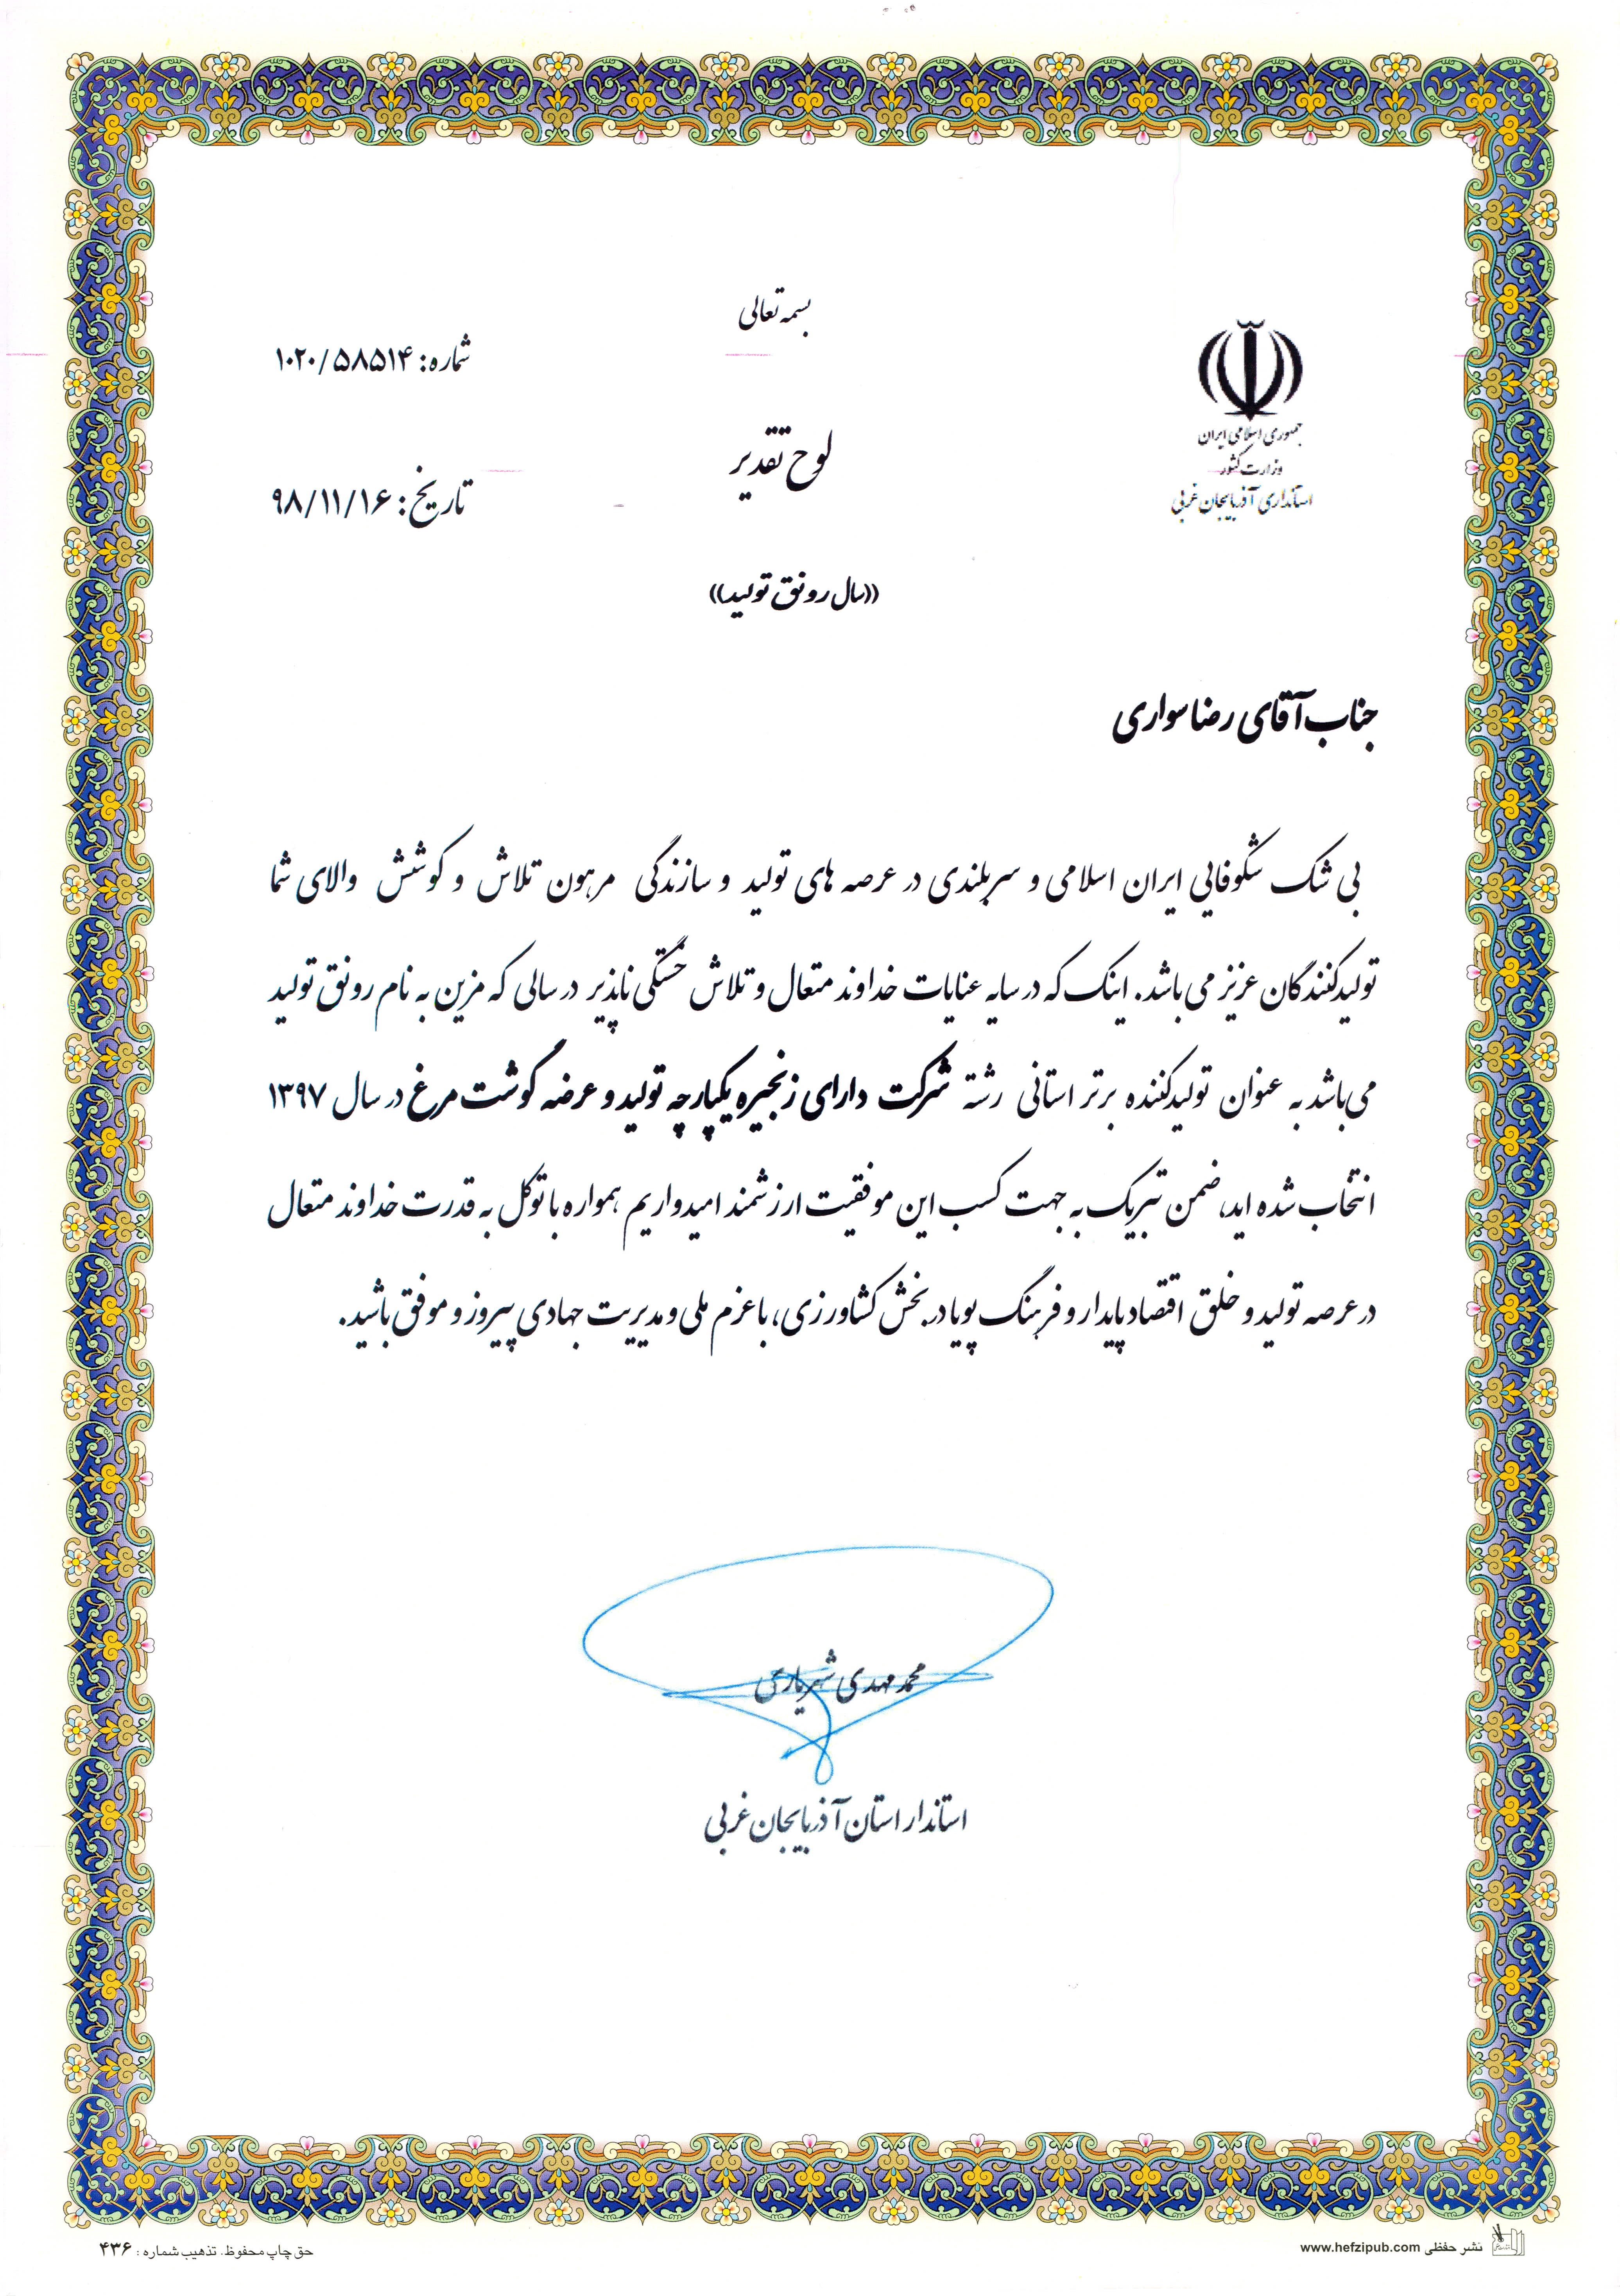 بسمه تعالی
شماره: ۱۰۲۰/۵۸۵۱۴
جمهوری اسلامی ایران
وزارت کشور
استانداری آذربایجان غربی
لوح تقدیر
تاریخ: ۹۸/۱۱/۱۶
((سال رونق تولید))
جناب آقای رضا سواری
بی شک شکوفایی ایران اسلامی و سربلندی در عرصه های تولید و سازندگی مرهون تلاش و کوشش والای شما
تولیدکنندگان عزیز می باشد. اینک که در سایه عنایات خداوند متعال و تلاش خستگی ناپذیر در سالی که مزین به نام رونق تولید
می باشد به عنوان تولیدکننده برتر استانی رشته شرکت دارای زنجیره یکپارچه تولید و عرضه گوشت مرغ در سال ۱۳۹۷
انتخاب شده اید، ضمن تبریک به جهت کسب این موفقیت ارزشمند امیدواریم همواره با توکل به قدرت خداوند متعال
در عرصه تولید و خلق اقتصاد پایدار و فرهنگ پویا در بخش کشاورزی، با عزم ملی و مدیریت جهادی پیروز و موفق باشید.
محمد مهدی شهریاری
استاندار استان آذربایجان غربی
نشر حفظی www.hefzipub.com
حق چاپ محفوظ. تذهیب شماره : ۴۳۶